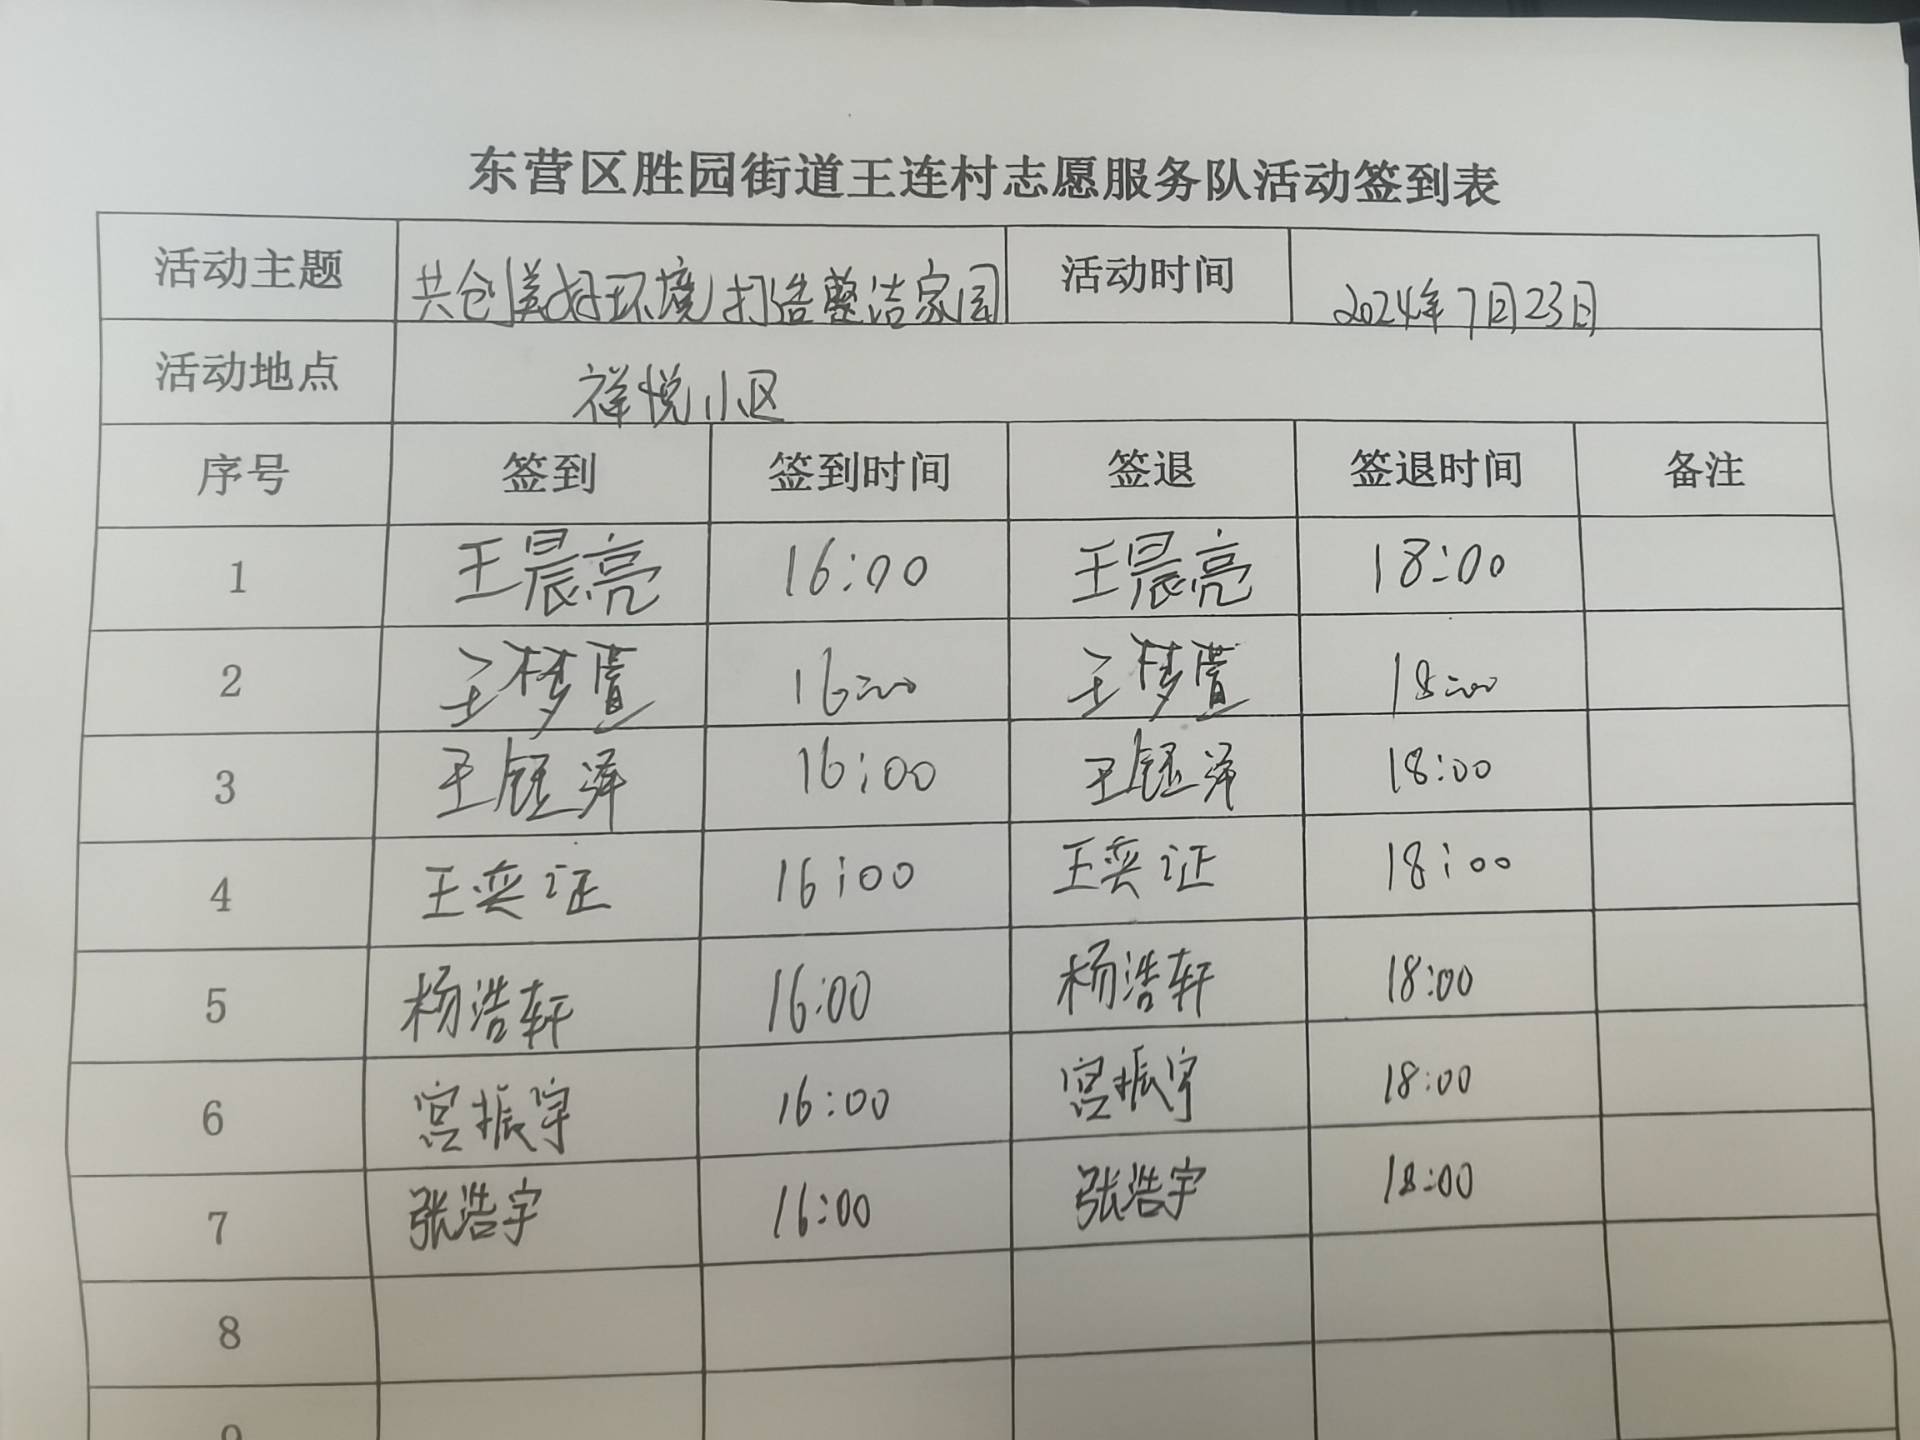 东营区胜园街道王连村志愿服务队活动签到表
活动主题 共创美好环境 打造整洁家园 活动时间 2024年7月23日
活动地点 祥悦小区
序号 签到 签到时间 签退 签退时间 备注
1 王晨亮 16:00 王晨亮 18:00
2 王梦萱 16:00 王梦萱 18:00
3 王钰泽 16:00 王钰泽 18:00
4 王奕证 16:00 王奕证 18:00
5 杨浩轩 16:00 杨浩轩 18:00
6 宫振宇 16:00 宫振宇 18:00
7 张浩宇 16:00 张浩宇 18:00
8
9